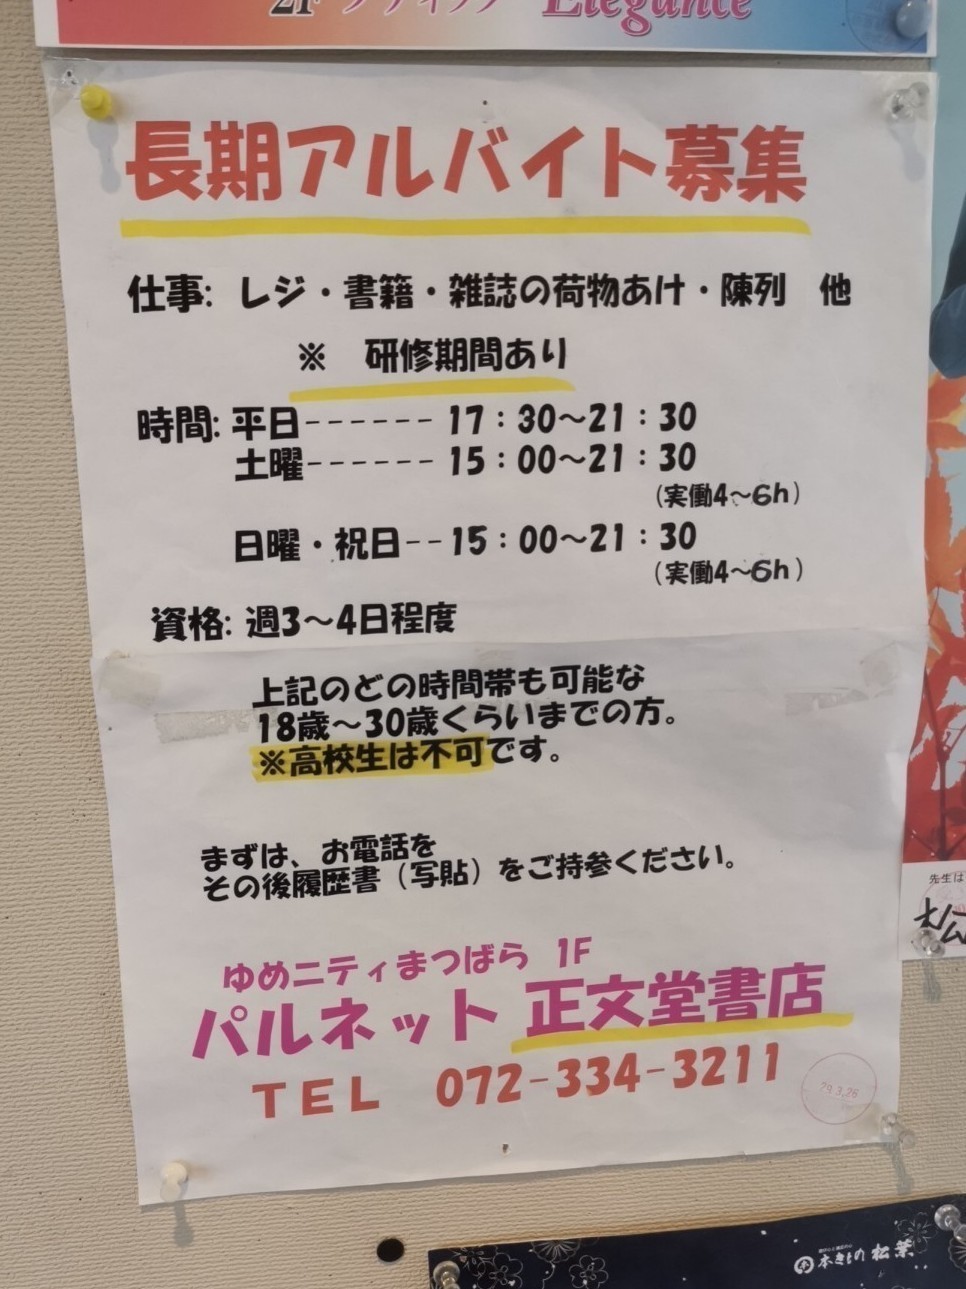 2F ブティック Elegance
長期アルバイト募集
仕事: レジ・書籍・雑誌の荷物あけ・陳列 他
※ 研修期間あり
時間: 平日------ 17:30～21:30
土曜------ 15:00～21:30
(実働4～6h)
日曜・祝日--15:00～21:30
(実働4～6h)
資格: 週3～4日程度
上記のどの時間帯も可能な
18歳～30歳くらいまでの方。
※高校生は不可です。
まずは、お電話を
その後履歴書(写貼)をご持参ください。
ゆめニティまつばら 1F
パルネット 正文堂書店
TEL 072-334-3211
29.3.26
先生は
本きもの 松葉